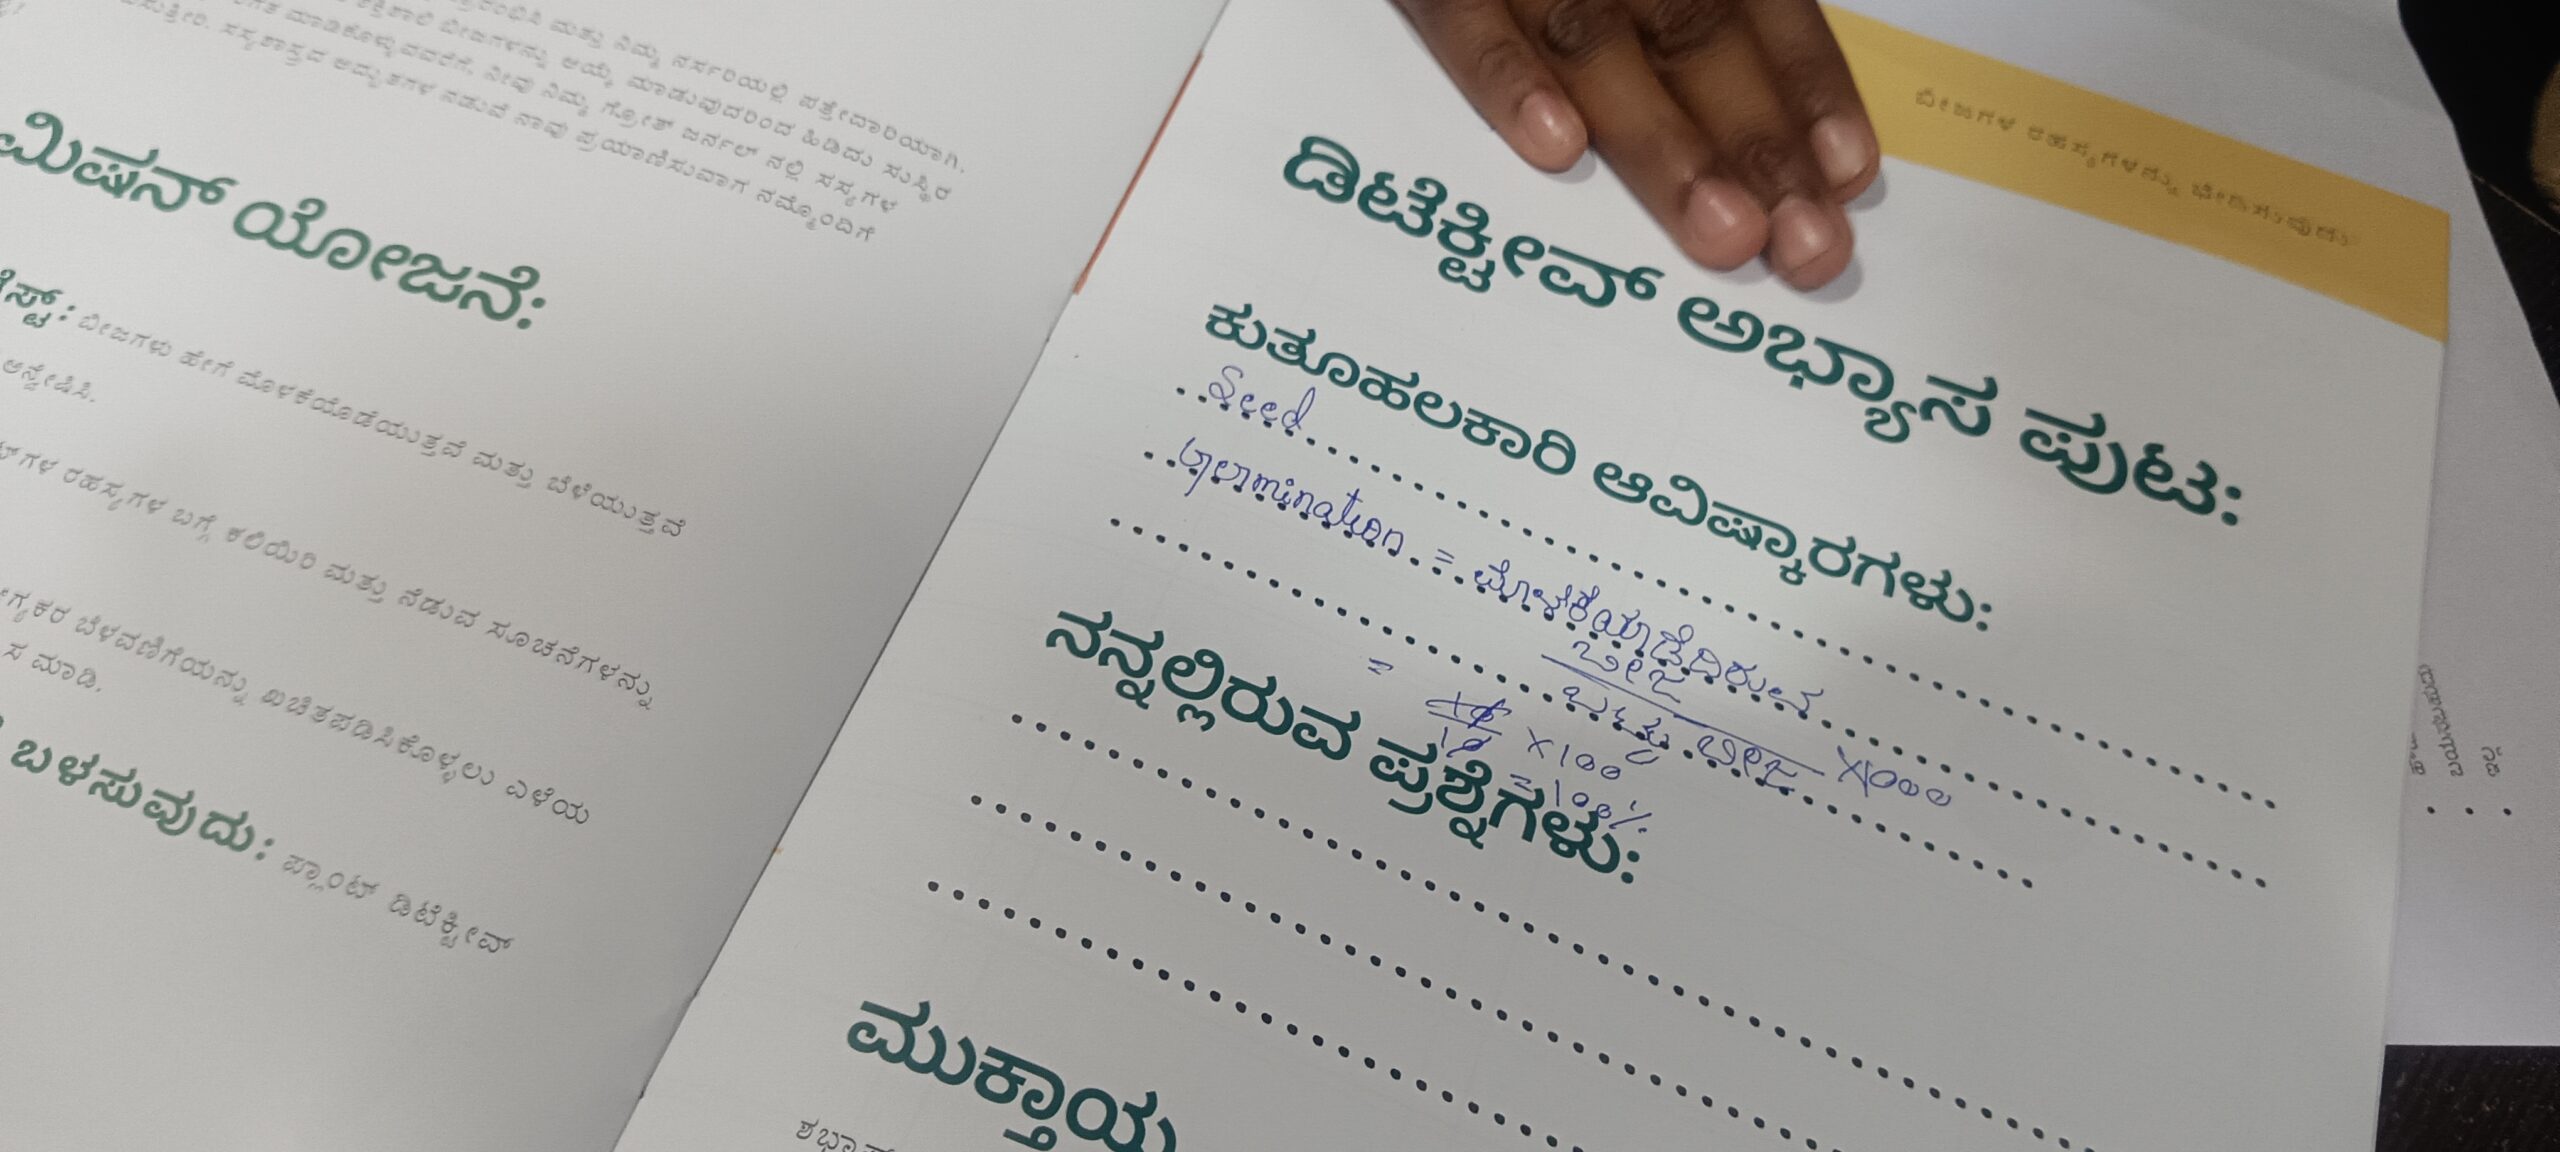 ಮತ್ತು ನಿಮ್ಮ ನರ್ಸರಿಯಲ್ಲಿ ಪತ್ತೇದಾರಿಯಾಗಿ.
ಬೀಜಗಳನ್ನು ಆಯ್ಕೆ ಮಾಡುವುದರಿಂದ ಹಿಡಿದು ಸುಸ್ಥಿರ
ಮಾಡಿಕೊಳ್ಳುವವರೆಗೆ, ನೀವು ನಿಮ್ಮ ಗ್ರೋತ್ ಜರ್ನಲ್ ನಲ್ಲಿ ಸಸ್ಯಗಳ
ಸಸ್ಯಶಾಸ್ತ್ರದ ಅದ್ಭುತಗಳ ನಡುವೆ ನಾವು ಪ್ರಯಾಣಿಸುವಾಗ ನಮ್ಮೊಂದಿಗೆ
ಮಿಷನ್ ಯೋಜನೆ:
ಬೀಜಗಳು ಹೇಗೆ ಮೊಳಕೆಯೊಡೆಯುತ್ತವೆ ಮತ್ತು ಬೆಳೆಯುತ್ತವೆ
ಅನ್ವೇಷಿಸಿ.
ರಹಸ್ಯಗಳ ಬಗ್ಗೆ ಕಲಿಯಿರಿ ಮತ್ತು ನೆಡುವ ಸೂಚನೆಗಳನ್ನು
ಬೆಳವಣಿಗೆಯನ್ನು ಖಚಿತಪಡಿಸಿಕೊಳ್ಳಲು ಎಳೆಯ
ಮಾಡಿ.
ಬಳಸುವುದು: ಪ್ಲಾಂಟ್ ಡಿಟೆಕ್ಟೀವ್
ಬೀಜಗಳ ರಹಸ್ಯಗಳನ್ನು ಭೇದಿಸುವುದು
ಡಿಟೆಕ್ಟೀವ್ ಅಭ್ಯಾಸ ಪುಟ:
ಕುತೂಹಲಕಾರಿ ಆವಿಷ್ಕಾರಗಳು:
Seed
geramination = ಮೊಳಕೆಯಾಡೆದಿರುವ
ಬೀಜ
ಒಟ್ಟು ಬೀಜ ×1000
= 10/10 ×100
= 100%
ನನ್ನಲ್ಲಿರುವ ಪ್ರಶ್ನೆಗಳು:
ಮುಕ್ತಾಯ